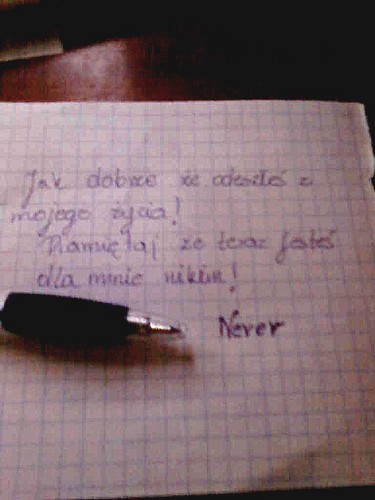 Jak dobrze że odeszłeś z
mojego życia!
Pamiętaj że teraz jesteś
dla mnie nikim!
Never